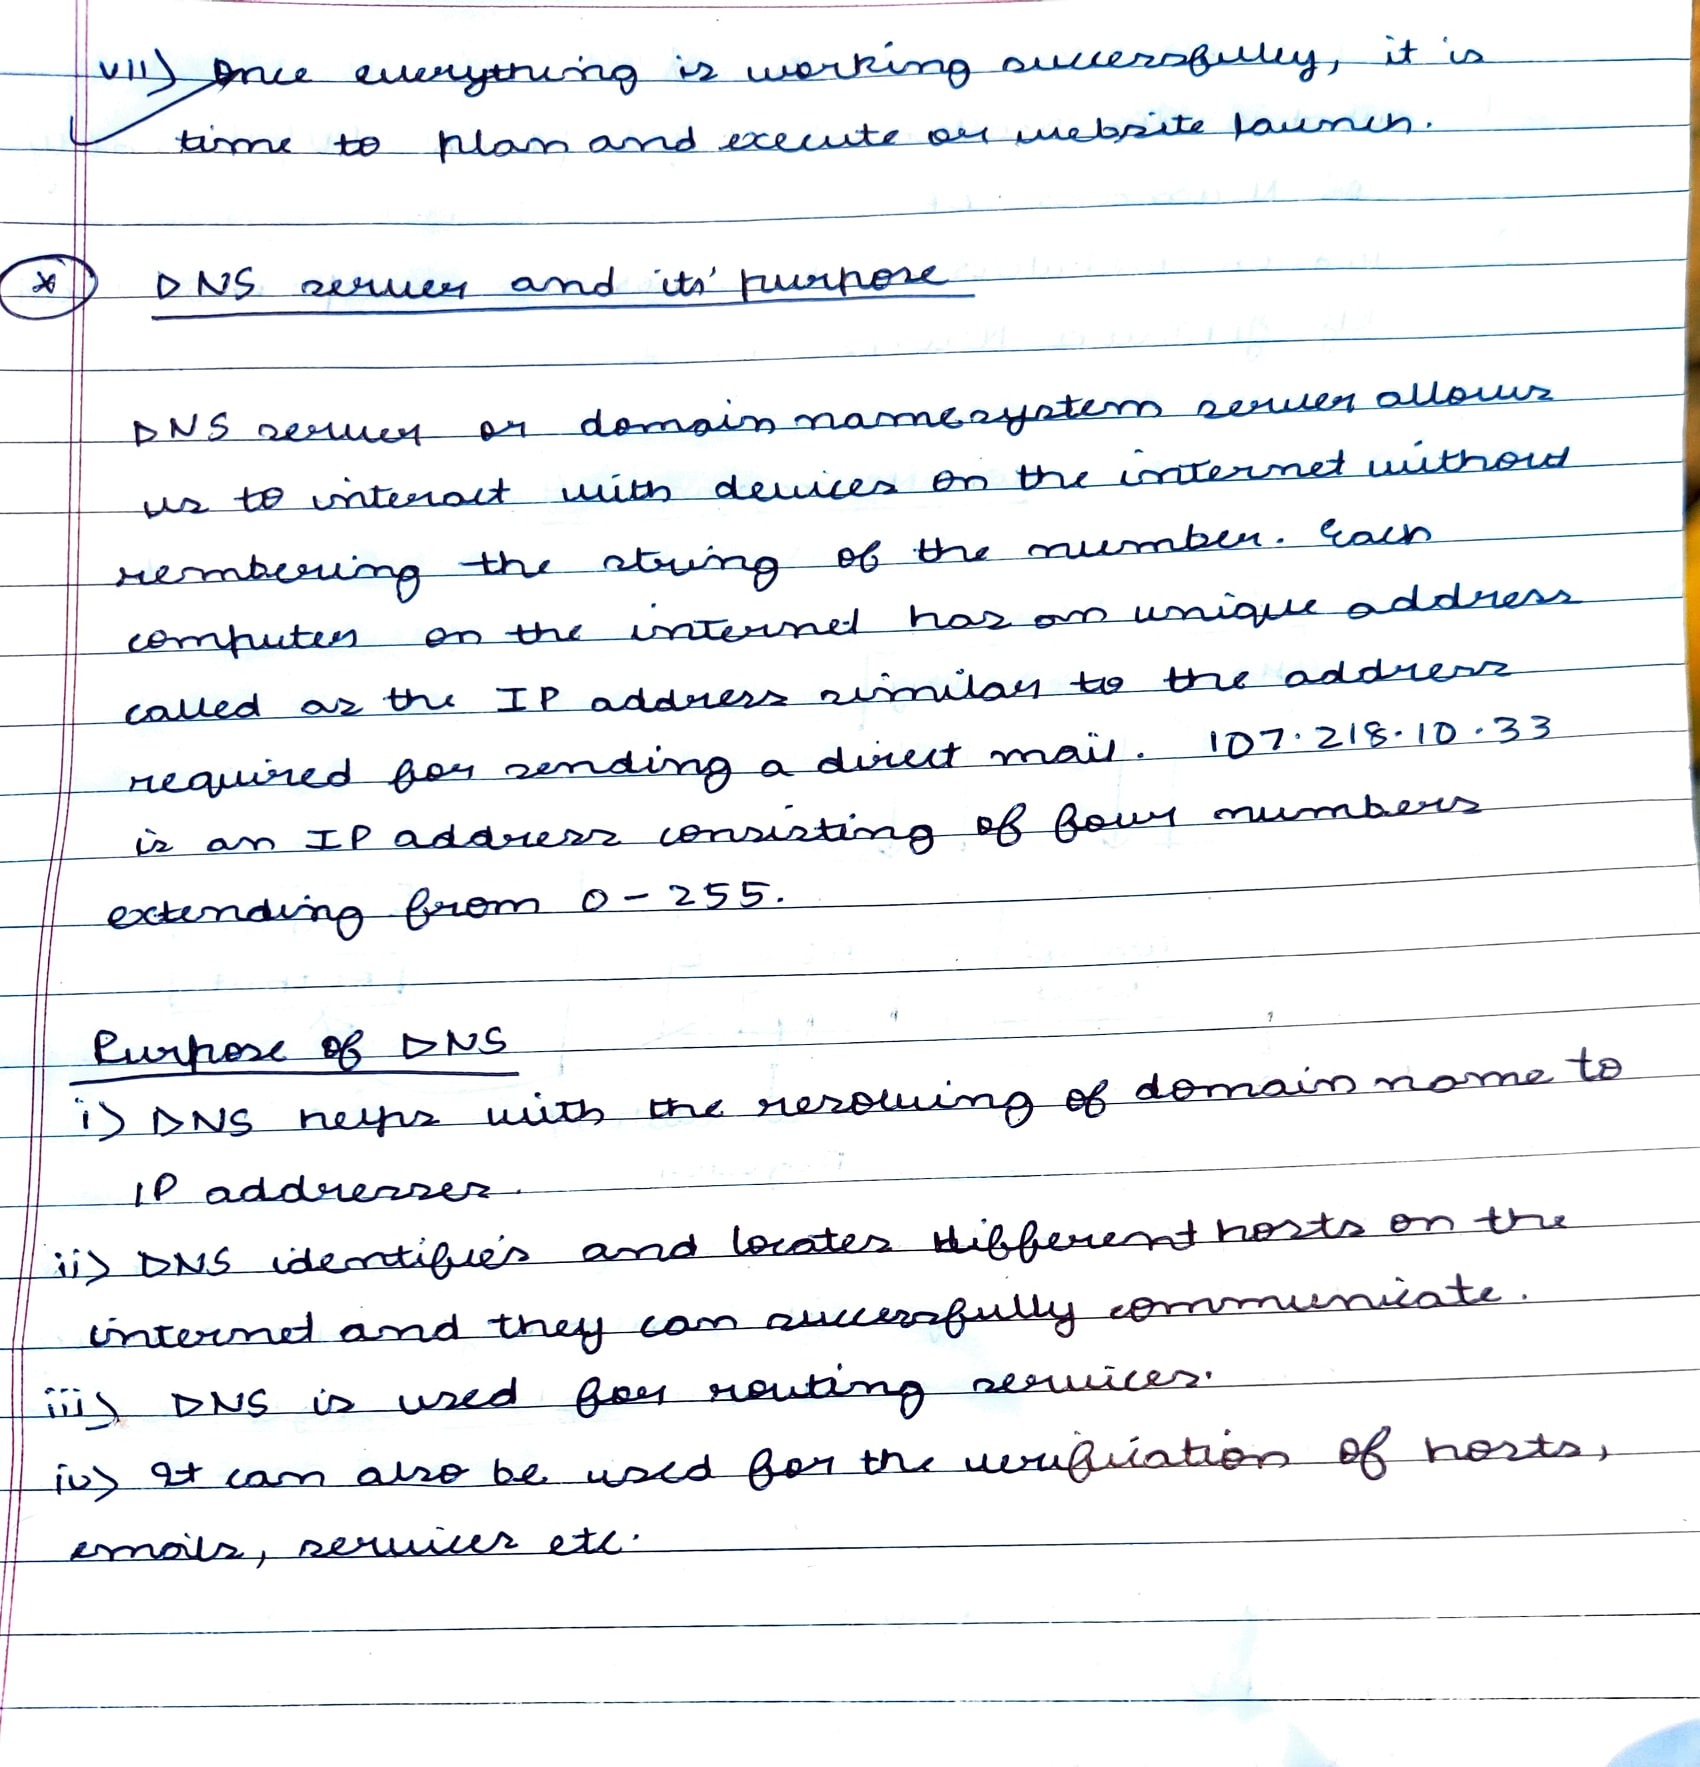 vii) Once everything is working successfully, it is
time to plan and execute our website launch.
* DNS server and its' purpose
DNS server or domain name system server allows
us to interact with devices on the internet without
rembering the string of the number. Each
computer on the internet has an unique address
called as the IP address similar to the address
required for sending a direct mail. 107.218.10.33
is an IP address consisting of four numbers
extending from 0-255.
Purpose of DNS
i) DNS helps with the resolving of domain name to
IP addresses.
ii) DNS identifies and locates different hosts on the
internet and they can successfully communicate.
iii) DNS is used for routing services.
iv) It can also be used for the verification of hosts,
emails, services etc.